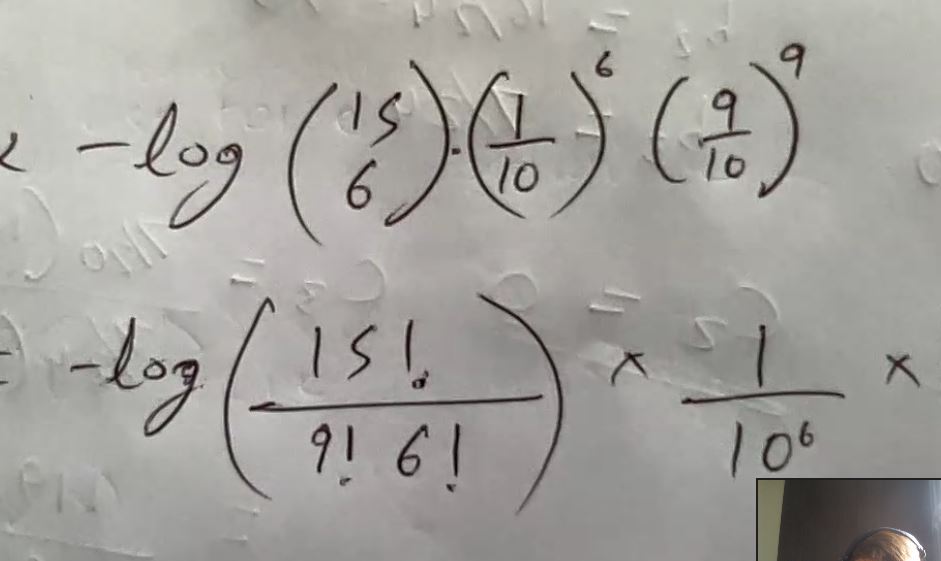 -log (15 6) · (1/10)^6 (9/10)^9
-log (15!/9! 6!) × 1/10^6 ×